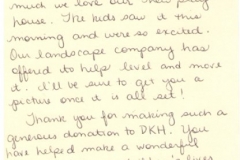 much we love our new play
house. The kids saw it this
morning and were so excited.
Our landscape company has
offered to help level and move
it. I'll be sure to get you a
picture once it is all set!
Thank you for making such a
generous donation to DKH. You
have helped make a wonderful